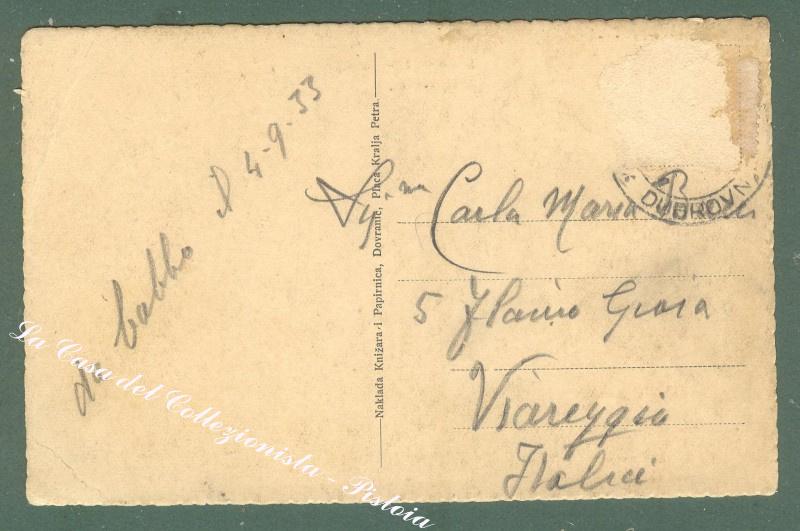 da babbo
4-9-33
Naklada Knižara i Papirnica, Dovranić, Placa Kralja Petra.
Carla Maria
5
Viareggio
Italia
DUBROVN
La Casa del Collezionista - Pistoia